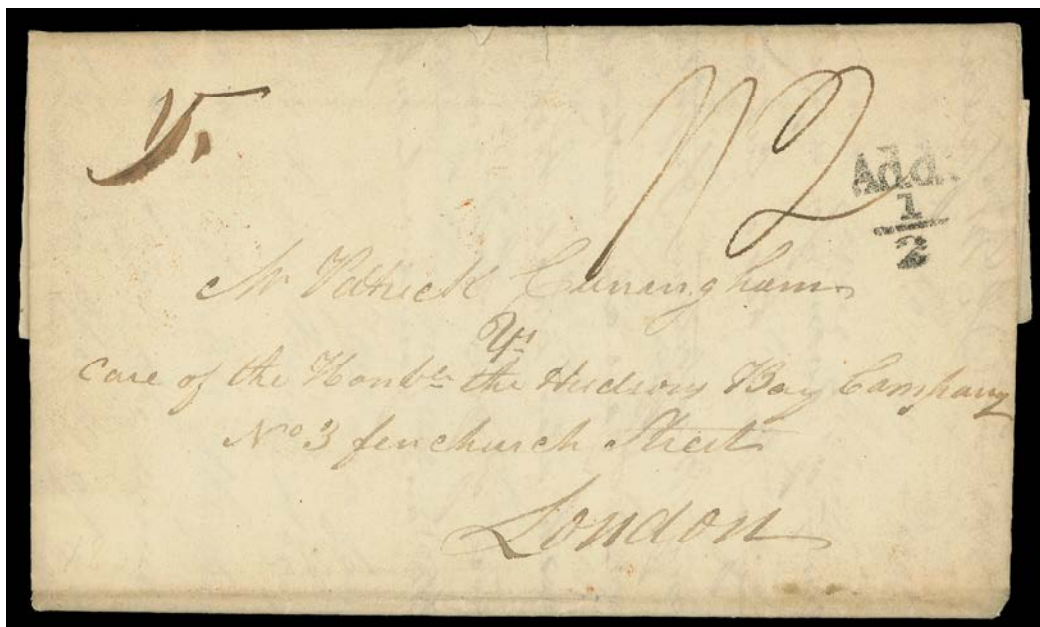 1/2
Add.
1
2
Mr Patrick Cunningham
care of the Honble the Hudsons Bay Company
No 3 fenchurch Street
London